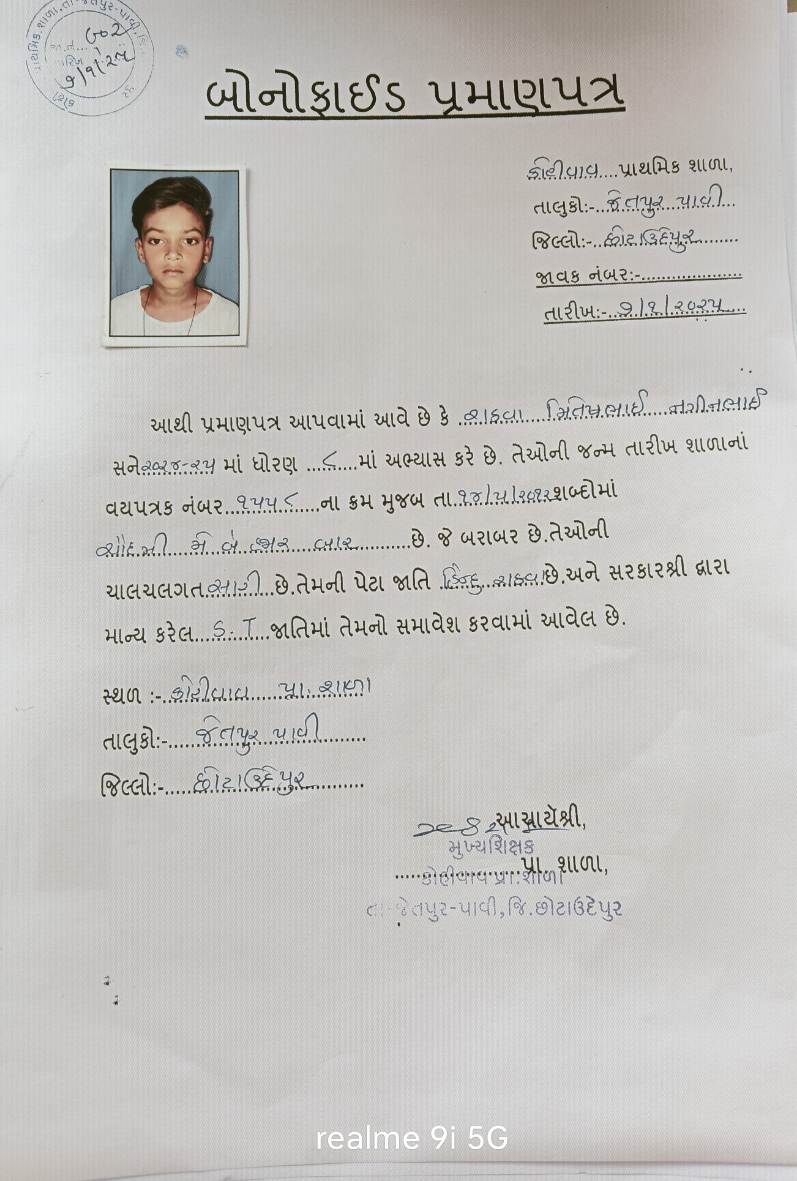 પ્રાથમિક શાળા, તા-જેતપુર-પાવી, જિ.
જા.નં... ૬૦૨
તારીખ ૭/૧/૨૫
બોનોફાઈડ પ્રમાણપત્ર
કોહીવાવ....પ્રાથમિક શાળા,
તાલુકો:-...જેતપુર પાવી...
જિલ્લો:-...છોટાઉદેપુર........
જાવક નંબર:-...................
તારીખ:-...૭/૧/૨૦૨૫....
આથી પ્રમાણપત્ર આપવામાં આવે છે કે ..રાઠવા....મિતેષભાઈ....નગીનભાઈ
સને૨૦૨૪-૨૫ માં ધોરણ ...૮....માં અભ્યાસ કરે છે. તેઓની જન્મ તારીખ શાળાનાં
વયપત્રક નંબર..૧૫૫૮.....ના ક્રમ મુજબ તા.૧૪/૫/૨૦૧૨શબ્દોમાં
ચૌદમી....મે બે હજાર બાર..........છે. જે બરાબર છે.તેઓની
ચાલચલગત.સારી...છે.તેમની પેટા જાતિ .હિન્દુ..રાઠવા.છે.અને સરકારશ્રી દ્વારા
માન્ય કરેલ....S. T...જાતિમાં તેમનો સમાવેશ કરવામાં આવેલ છે.
સ્થળ :-..કોહીવાવ.....પ્રા. શાળા
તાલુકો:-......જેતપુર પાવી........
જિલ્લો:-.....છોટાઉદેપુર...........
આચાર્યશ્રી,
મુખ્યશિક્ષક
.....................પ્રા. શાળા,
કોહીવાવ પ્રા.શાળા
તા-જેતપુર-પાવી,જિ.છોટાઉદેપુર
realme 9i 5G